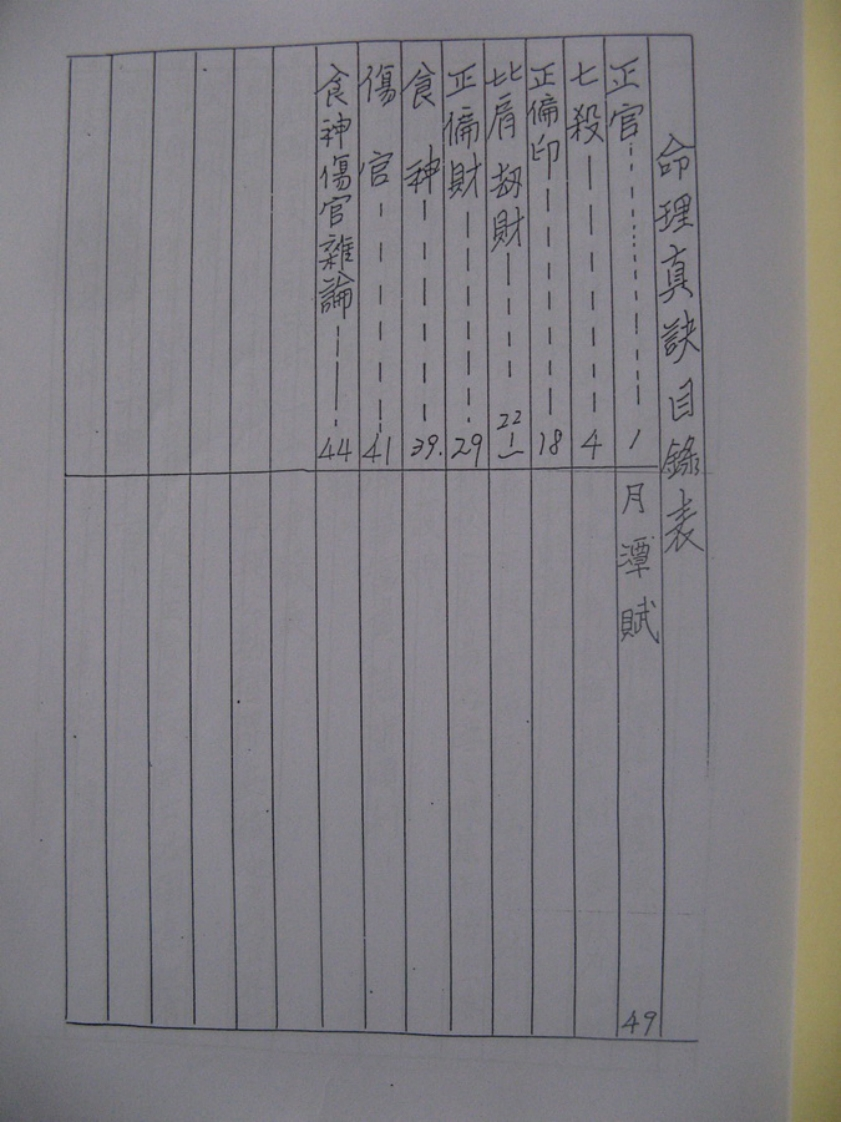 命理真訣目錄表
正官 1
七殺 4
正偏印 18
比肩劫財 22
正偏財 29
食神 39.
傷官 41
食神傷官雜論 44
月潭賦 49